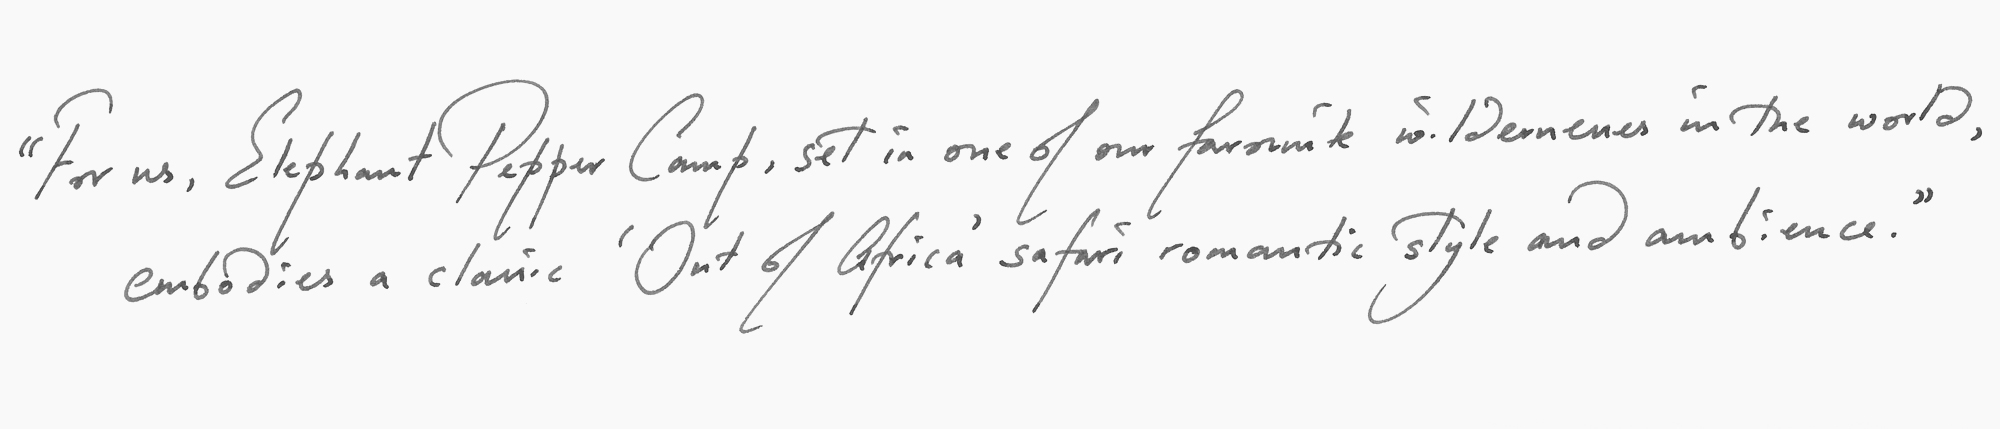 “For us, Elephant Pepper Camp, set in one of our favourite wildernesses in the world,
embodies a classic ‘Out of Africa’ safari romantic style and ambience.”